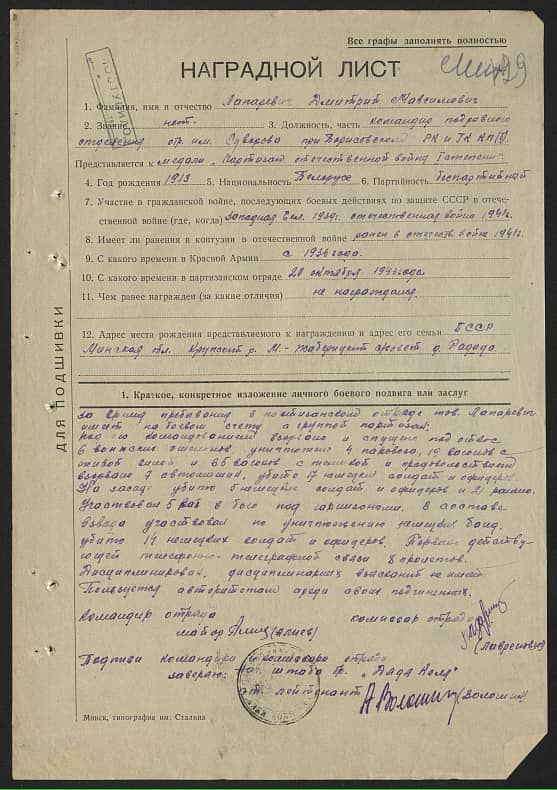 Все графы заполнять полностью
НАГРАДНОЙ ЛИСТ
1. Фамилия, имя и отчество Лапаревич Дмитрий Максимович
2. Звание нет. 3. Должность, часть командир подрывного
отделения отр. им. Суворова при Борисовском РК и ГК КП(б)
Представляется к медали „Партизан отечественной войны I степени"
4. Год рождения 1913 5. Национальность Белорусс 6. Партийность беспартийный
7. Участие в гражданской войне, последующих боевых действиях по защите СССР в отече-
ственной войне (где, когда) Западная Бел. 1939г. отечественная война 1941г.
8. Имеет ли ранения и контузии в отечественной войне ранен в отечеств. войне 1941г.
9. С какого времени в Красной Армии с 1936 года.
10. С какого времени в партизанском отряде 20 октября 1943 года
11. Чем ранее награжден (за какие отличия) не награждался
12. Адрес места рождения представляемого к награждению и адрес его семьи БССР
Минская обл. Крупский р. М.- сельсовет д.
ДЛЯ ПОДШИВКИ
1. Краткое, конкретное изложение личного боевого подвига или заслуг
За время пребывания в партизанском отряде тов. Лапаревич
имеет на боевом счету с группой партизан:
Под его командованием взорвано и спущено под откос
6 воинских эшелонов, уничтожено 4 паровоза, 19 вагонов с
живой силой и 65 вагонов с техникой и продовольствием
взорвано 7 автомашин, убито 17 немецких солдат и офицеров.
На засаде убито 5 немецких солдат и офицеров и 2 ранено.
Участвовал 5 раз в бою под гарнизоном. В составе
взвода участвовал по уничтожению немецких банд,
убито 14 немецких солдат и офицеров. Порвано действу-
ющей телефонно-телеграфной связи 8 пролетов.
Дисциплинирован, дисциплинарных взысканий не имеет
Пользуется авторитетом среди своих подчиненных.
Командир отряда комиссар отряда
майор (Алиев)
(Лавренов)
Подписи командира и комиссара отряда
заверяю: Нач. штаба бр. „Дяди Коли"
ст. лейтенант А Волошин (Волошин)
Минск, типография им. Сталина